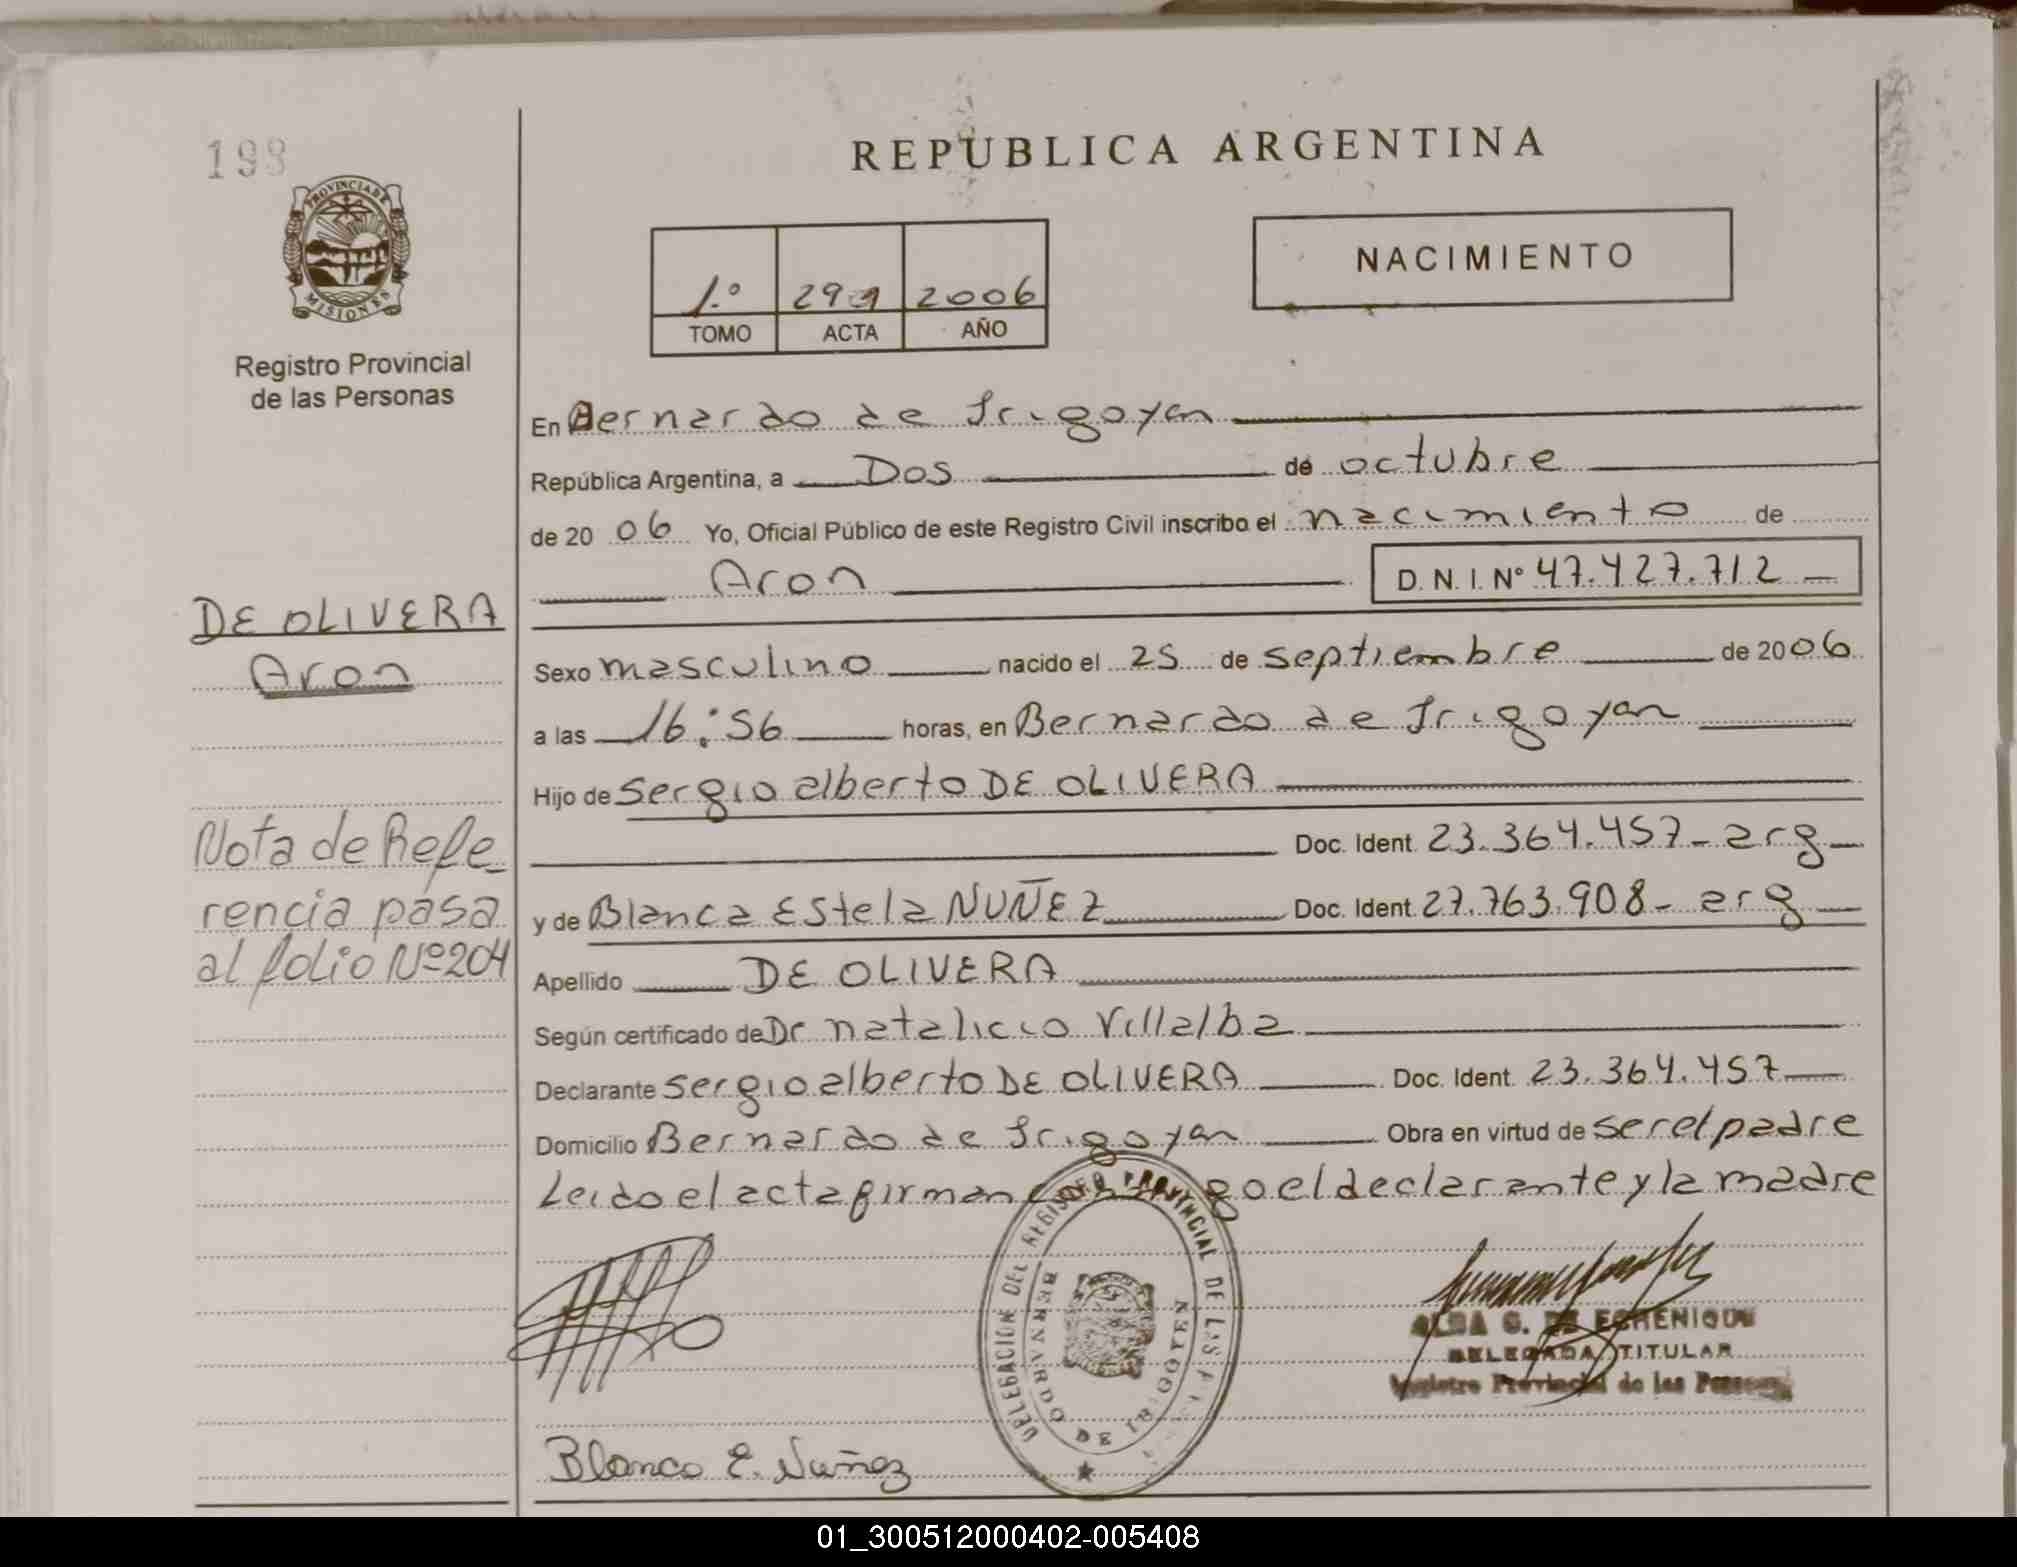 198
PROVINCIA DE
MISIONES
Registro Provincial
de las Personas
DE OLIVERA
Aron
Nota de Refe_
rencia pasa
al folio Nº 204
REPUBLICA ARGENTINA
1.º 291 2006
TOMO ACTA AÑO
NACIMIENTO
En Bernardo de Irigoyen
República Argentina, a Dos de octubre
de 20 06 Yo, Oficial Público de este Registro Civil inscribo el nacimiento de
Aron D.N.I. Nº 47.427.712
Sexo masculino nacido el 25 de septiembre de 2006
a las 16:56 horas, en Bernardo de Irigoyan
Hijo de Sergio alberto DE OLIVERA
Doc. Ident. 23.364.457- arg
y de Blanca Estela NUÑEZ Doc. Ident. 27.763.908- arg
Apellido DE OLIVERA
Según certificado de Dr natalicio Villalba
Declarante Sergio alberto DE OLIVERA Doc. Ident. 23.364.457
Domicilio Bernardo de Irigoyan Obra en virtud de ser el padre
Leido el acta firman conmigo el declarante y la madre
DELEGACION DEL REGISTRO PROVINCIAL DE LAS
BERNARDO DE IRIGOYEN
ALBA G. DE ECHENIQUE
DELEGADA TITULAR
Registro Provincial de las Personas
Blanca E. Nuñez
01_300512000402-005408